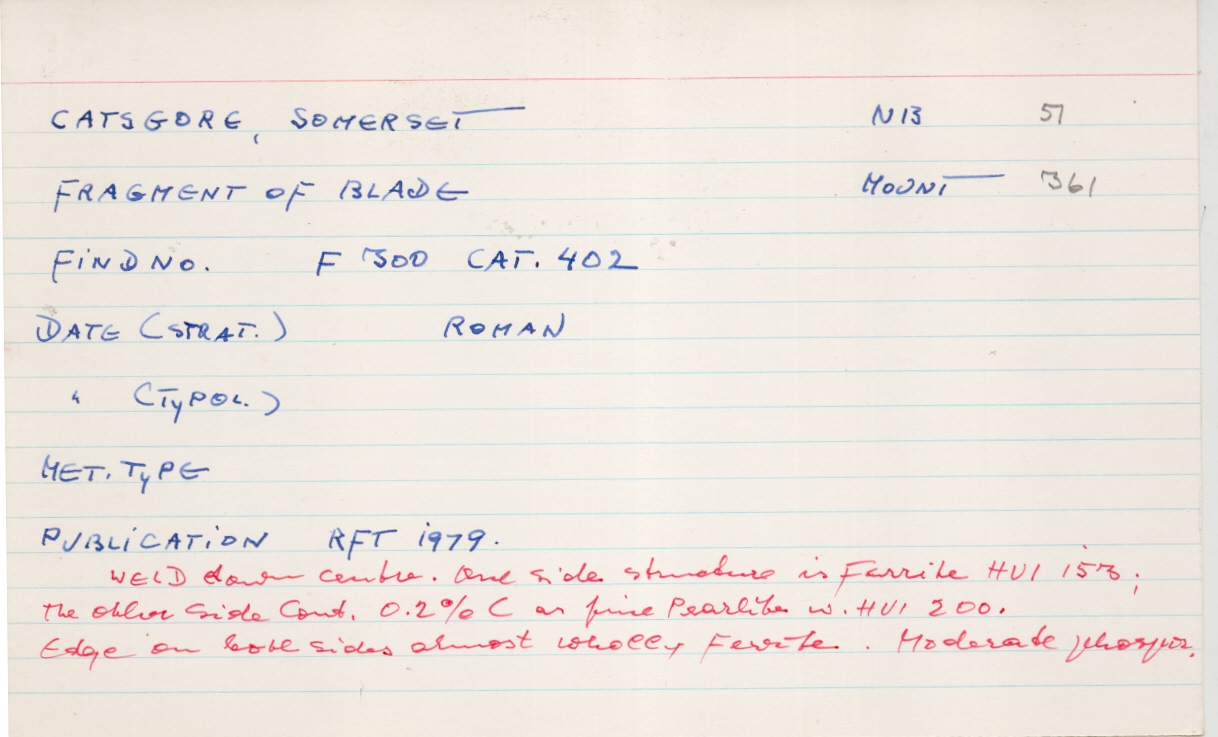 CATSGORE, SOMERSET NB 51
FRAGMENT OF BLADE MOUNT 361
FIND NO. F 300 CAT. 402
DATE (STRAT.) ROMAN
" (TYPOL.)
MET. TYPE
PUBLICATION RFT 1979.
WELD down centre. One side structure is Ferrite HV1 153;
the other side Cont. 0.2% C as fine Pearlite w. HV1 200.
Edge on both sides almost wholly Ferrite. Moderate phosphor.